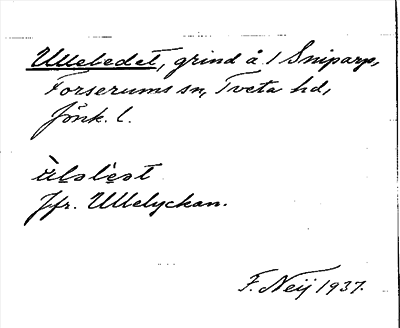 Ulleledet, grind å 1 Sniparp,
Forserums sn, Tveta hd,
Jönk. l.
Jfr. Ullelyckan.
F. Neij 1937.